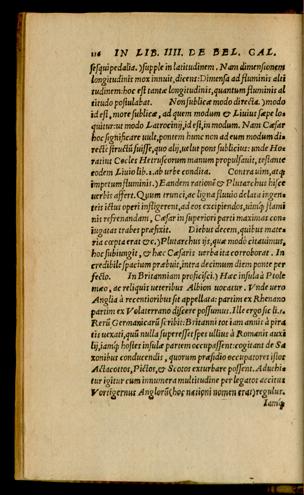 116 IN LIB. IIII. DE BEL. GAL.
sesquipedalia. )supple in latitudinem. Nam dimensionem
longitudinis mox innuit, dicens: Dimensa ad fluminis alti
tudinem: hoc est tantæ longitudinis, quantum fluminis al
titudo postulabat. Non sublicæ modo directa. )modo
id est, more sublicæ, ad quem modum & Liuius sæpe lo
quitur: ut modo Latrocinij, id est, in modum. Nam Cæsar
hoc significare uult, pontem hunc non ad eum modum di
rectè structũ fuisse, quo alij, uelut pons sublicius: unde Ho
ratius Cocles Hetruscorum manum propulsauit, testante
eodem Liuio lib. 2. ab urbe condita. Contra uim, atq;
impetum fluminis. ) Eandem rationẽ & Plutarchus hisce
uerbis affert. Quum trunci, ac ligna fluuio delata ingen-
tes ictus operi infligerent, ad eos excipiendos, uimq́; flumi
nis refrenandam, Cæsar in superiori parti maximas con-
iugatas trabes præfixit. Diebus decem, quibus mate-
ria cœpta erat &c.) Plutarchus ijs, quæ modo citauimus,
hoc subiungit, & hæc Cæsaris uerba ita corroborat. In
credibile spacium præbuit, intra decimum diem ponte per
fecto. In Britanniam proficisci.) Hæc insula à Ptole
mæo, ac reliqui ueteribus Albion uocatur. Vnde uero
Anglia à recentioribus sit appellata: partim ex Rhenano
partim ex Volaterrano discere possumus. Ille ergo sic li. 1.
Rerũ Germanicarũ scribit: Britanni toti am annis à pira
tis uexati, quũ nulla superesset spes ullius à Romanis auxi
lij, iamq́; hostes insulæ partem occupassent: cogitant de Sa
xonibus conducendis, quorum præsidio occupatores istos
Actacottos, Pictos, & Scotos exturbare possent. Aduehi-
tur igitur cum innumera multitudine per legatos accitus
Vortigernus Anglorũ (hoc nationi nomen erat) regulus.
Iamq́;